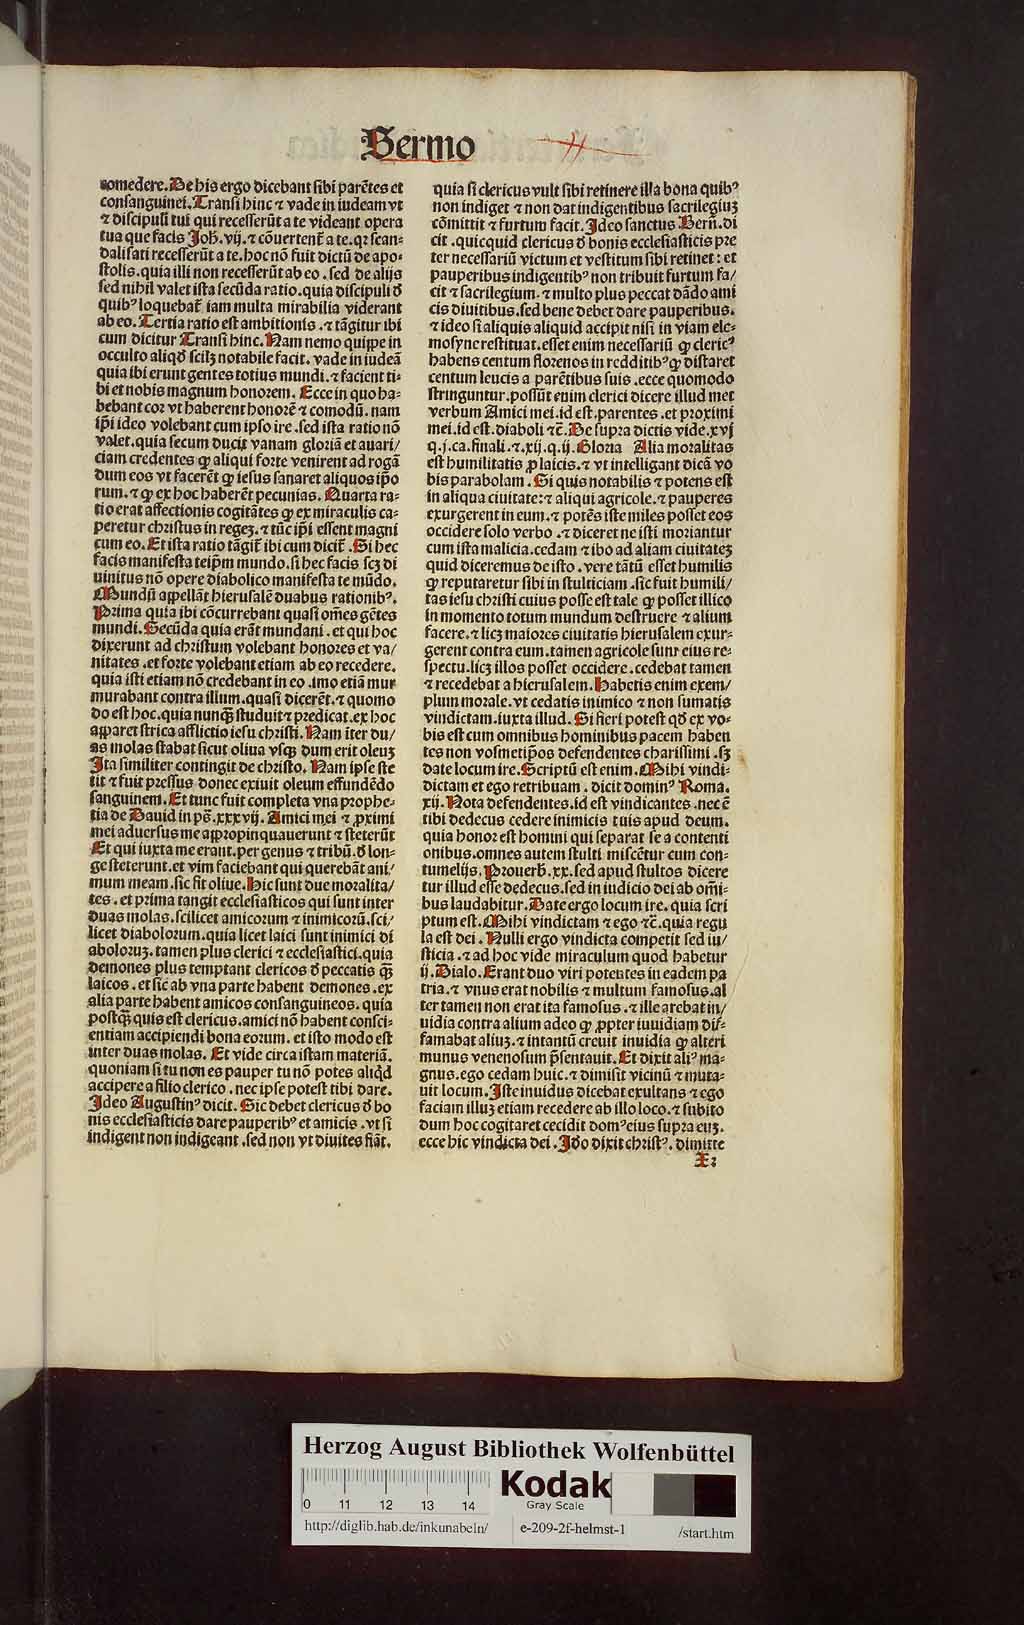 Sermo
comedere. De his ergo dicebant sibi parẽtes et
consanguinei. Transi hinc ⁊ vade in iudeam vt
⁊ discipuli tui qui recesserũt a te videant opera
tua que facis Joh̃. vij. ⁊ cõuertent̃ a te. qꝛ scan⸗
dalisati recesserũt a te. hoc nõ fuit dictũ de apo⸗
stolis. quia illi non recesserũt ab eo. sed de alijs
sed nihil valet ista secũda ratio. quia discipuli ð
quibꝰ loquebat̃ iam multa mirabilia viderant
ab eo. Tertia ratio est ambitionis. ⁊ tãgitur ibi
cum dicitur Transi hinc. Nam nemo quippe in
occulto aliqð scilꝫ notabile facit. vade in iudeã
quia ibi erunt gentes totius mundi. ⁊ facient ti⸗
bi et nobis magnum honorem. Ecce in quo ha⸗
bebant cor vt haberent honorẽ ⁊ comodũ. nam
ip̃i ideo volebant cum ipso ire. sed ista ratio nõ
valet. quia secum ducit vanam gloriã et auari/
ciam credentes ꝙ aliqui forte venirent ad rogã
dum eos vt facerẽt ꝙ iesus sanaret aliquos ip̃o
rum. ⁊ ꝙ ex hoc haberẽt pecunias. Quarta ra⸗
tio erat affectionis cogitãtes ꝙ ex miraculis ca⸗
peretur christus in regeꝫ. ⁊ tũc ip̃i essent magni
cum eo. Et ista ratio tãgit̃ ibi cum dicit̃. Si hec
facis manifesta teip̃m mundo. si hec facis scꝫ di
uinitus nõ opere diabolico manifesta te mũdo.
Mundũ appellãt hierusalẽ duabus rationibꝰ.
Prima quia ibi cõcurrebant quasi om̃es gẽtes
mundi. Secũda quia erãt mundani. et qui hoc
dixerunt ad christum volebant honores et va/
nitates. et forte volebant etiam ab eo recedere.
quia isti etiam nõ credebant in eo. imo etiã mur
murabant contra illum. quasi dicerẽt. ⁊ quomo
do est hoc. quia nunqᷓ studuit ⁊ predicat. ex hoc
apparet stricta afflictio iesu christi. Nam iter du/
as molas stabat sicut oliua vsqꝫ dum erit oleuꝫ
Ita similiter contingit de christo. Nam ipse ste
tit ⁊ fuit pressus donec exiuit oleum effundẽdo
sanguinem. Et tunc fuit completa vna prophe⸗
tia de Dauid in ps̃. xxxvij. Amici mei ⁊ ꝓximi
mei aduersus me appropinquauerunt ⁊ steterũt
Et qui iuxta me erant. per genus ⁊ tribũ. ð lon⸗
ge steterunt. et vim faciebant qui querebãt ani/
mum meam. sic fit oliue. Hic sunt due moralita/
tes. et prima tangit ecclesiasticos qui sunt inter
duas molas. scilicet amicorum ⁊ inimicorũ. sci/
licet diabolorum. quia licet laici sunt inimici di
aboloruꝫ. tamen plus clerici ⁊ ecclesiastici. quia
demones plus temptant clericos ð peccatis qᷓꝫ
laicos. et sic ab vna parte habent demones. ex
alia parte habent amicos consanguineos. quia
postqᷓꝫ quis est clericus. amici nõ habent consci⸗
entiam accipiendi bona eorum. et isto modo est
inter duas molas. Et vide circa istam materiã.
quoniam si tu non es pauper tu nõ potes aliqð
accipere a filio clerico. nec ipse potest tibi dare.
Ideo Augustinꝰ dicit. Sic debet clericus ð bo
nis ecclesiasticis dare pauperibꝰ et amicis. vt si
indigent non indigeant. sed non vt diuites fiãt.
quia si clericus vult sibi retinere illa bona quibꝰ
non indiget ⁊ non dat indigentibus sacrilegiuꝫ
cõmittit ⁊ furtum facit. Ideo sanctus Bern̄. di
cit. quicquid clericus ð bonis ecclesiasticis pre
ter necessariũ victum et vestitum sibi retinet: et
pauperibus indigentibꝰ non tribuit furtum fa/
cit ⁊ sacrilegium. ⁊ multo plus peccat dãdo ami
cis diuitibus. sed bene debet dare pauperibus.
⁊ ideo si aliquis aliquid accipit nisi in viam ele⸗
mosyne restituat. esset enim necessariũ ꝙ clericꝰ
habens centum florenos in redditibꝰ ꝙ distaret
centum leucis a parẽtibus suis. ecce quomodo
stringuntur. possũt enim clerici dicere illud met
verbum Amici mei. id est. parentes. et proximi
mei. id est. diaboli ⁊c̃. De supra dictis vide. xvj
q. j. ca. finali. ⁊. xij. q. ij. Gloria Alia moralitas
est humilitatis ꝓ laicis. ⁊ vt intelligant dicã vo
bis parabolam. Si quis notabilis ⁊ potens est
in aliqua ciuitate: ⁊ aliqui agricole. ⁊ pauperes
exurgerent in eum. ⁊ potẽs iste miles posset eos
occidere solo verbo. ⁊ diceret ne isti moriantur
cum ista malicia. cedam ⁊ ibo ad aliam ciuitateꝫ
quid diceremus de isto. vere tãtũ esset humilis
ꝙ reputaretur sibi in stulticiam. sic fuit humili/
tas iesu christi cuius posse est tale ꝙ posset illico
in momento totum mundum destruere ⁊ alium
facere. ⁊ licꝫ maiores ciuitatis hierusalem exur⸗
gerent contra eum. tamen agricole sunt eius re⸗
spectu. licꝫ illos posset occidere. cedebat tamen
⁊ recedebat a hierusalem. Habetis enim exem/
plum morale. vt cedatis inimico ⁊ non sumatis
vindictam. iuxta illud. Si fieri potest qð ex vo⸗
bis est cum omnibus hominibus pacem haben
tes non vosmetip̃os defendentes charissimi. sꝫ
date locum ire. Scriptũ est enim. Mihi vindi⸗
dictam et ego retribuam. dicit dominꝰ Roma.
xij. Nota defendentes. id est vindicantes. nec ẽ
tibi dedecus cedere inimicis tuis apud deum.
quia honor est homini qui separat se a contenti
onibus. omnes autem stulti miscẽtur cum con⸗
tumelijs. Prouerb̃. xx. sed apud stultos dicere
tur illud esse dedecus. sed in iudicio dei ab om̃i⸗
bus laudabitur. Date ergo locum ire. quia scri
ptum est. Mihi vindictam ⁊ ego ⁊c̃. quia regu
la est dei. Nulli ergo vindicta competit sed iu/
sticia. ⁊ ad hoc vide miraculum quod habetur
ij. Dialo. Erant duo viri potentes in eadem pa
tria. ⁊ vnus erat nobilis ⁊ multum famosus. al
ter tamen non erat ita famosus. ⁊ ille arebat in/
uidia contra alium adeo ꝙ ꝓpter inuidiam dif⸗
famabat aliuꝫ. ⁊ intantũ creuit inuidia ꝙ alteri
munus venenosum p̃sentauit. Et dixit aliꝰ ma⸗
gnus. ego cedam huic. ⁊ dimisit vicinũ ⁊ muta⸗
uit locum. Iste inuidus dicebat exultans ⁊ ego
faciam illuꝫ etiam recedere ab illo loco. ⁊ subito
dum hoc cogitaret cecidit domꝰ eius supra euꝫ.
ecce hic vindicta dei. Iðo dixit christꝰ. dimitte
X 2
Herzog August Bibliothek Wolfenbüttel
0 11 12 13 14
Kodak
Gray Scale
http://diglib.hab.de/inkunabeln/
e-209-2f-helmst-1
/start.htm